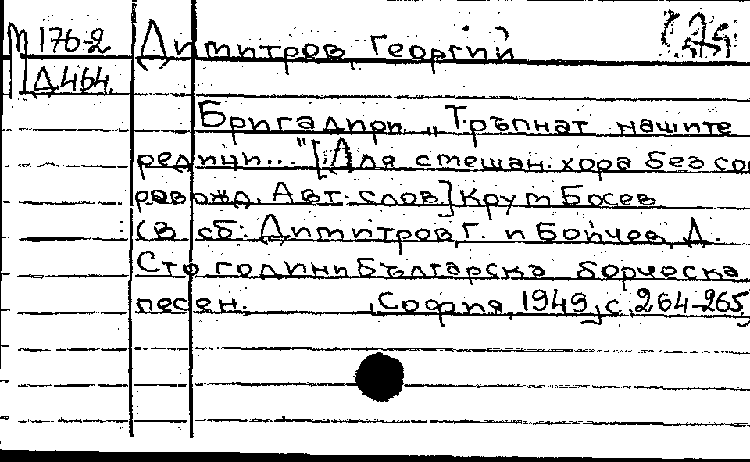 М 176-2 Димитров, Георгий
Д464
Бригадири „Тръпнат нашите
редици..." [Для смешан. хора без со
ровожд. Авт. слов.] Крум Босев
(В сб: Димитров, Г. и Бойчев, Д.
Сто години Българска борческа
песен. София, 1949, с. 264-265